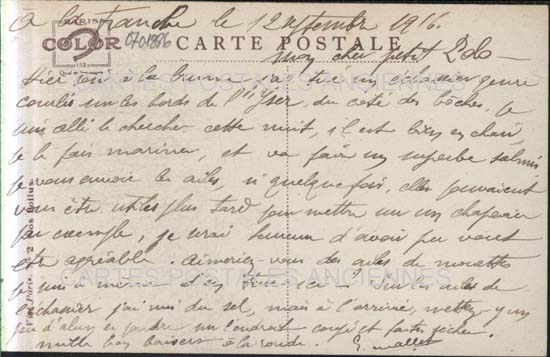 A la Tranchée le 12 septembre 1916.
PARIS COLOR
0701896
CARTE POSTALE
mon cher petit Dédo
Hier soir à la brume j'ai tué un échassier genre
courlis sur les bords de l'Yser, du côté des bôches, je
suis allé le chercher cette nuit, il est bien en chair,
je le fais mariner, et va faire un superbe salmis
je vous envoie les ailes, si quelquefois, elles pouvaient
vous être utiles plus tard pour mettre sur un chapeau
par exemple, je serai heureux d'avoir pu vous
être agréable. Aimeriez-vous des ailes de mouettes
je suis à même d'en tuer Sur les ailes de
l'échassier j'ai mis du sel, mais à l'arrivée, mettez-y un
peu d'alun en poudre un l'endroit coupé et faites sécher.
mille bons baisers à la ronde. G. mallet
CARTES POSTALES ANCIENNES
CARTES POSTALES ANCIENNES
2 Nos Poilus.